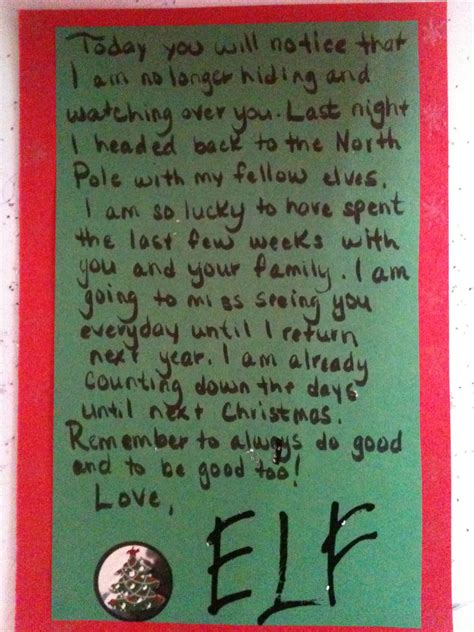 Today you will notice that
I am no longer hiding and
watching over you. Last night
I headed back to the North
Pole with my fellow elves.
I am so lucky to have spent
the last few weeks with
you and your family. I am
going to miss seeing you
everyday until I return
next year. I am already
counting down the days
until next Christmas.
Remember to always do good
and to be good too!
Love,
ELF